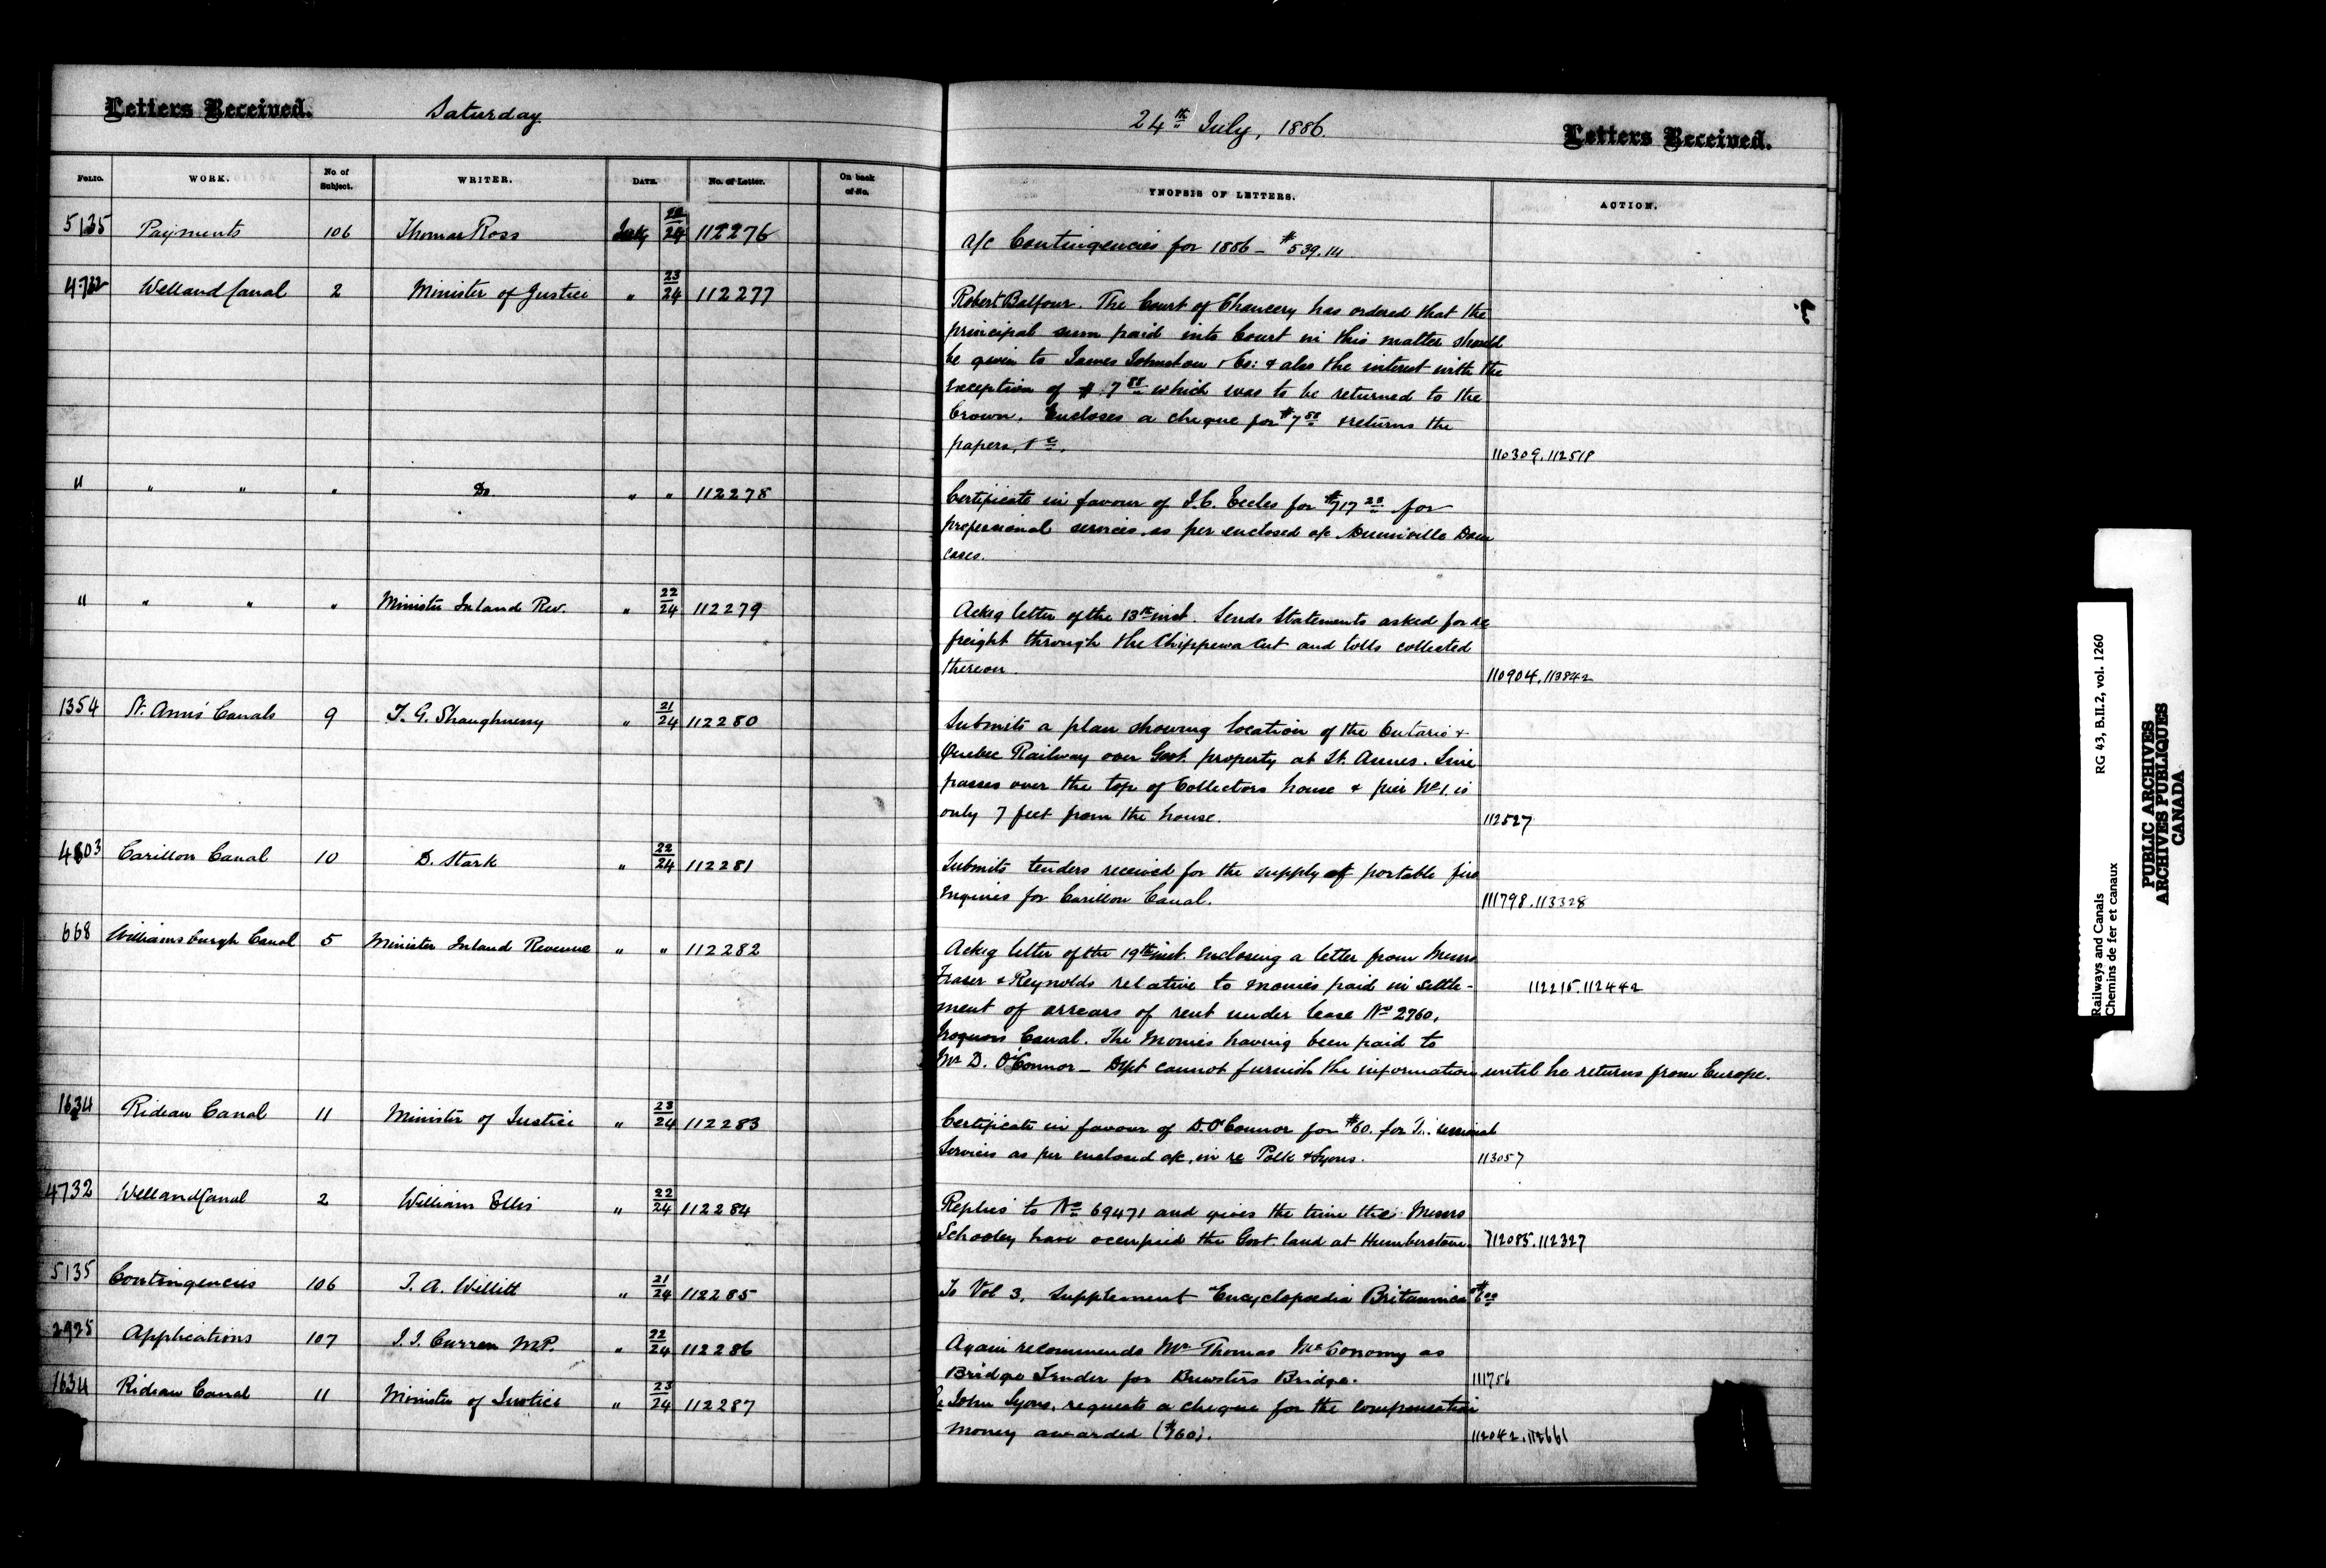 Letters Received. Saturday 24th July, 1886 Letters Received.
FOLIO. WORK. No. of Subject. WRITER. DATE. No. of Letter. On back of No. YNOPSIS OF LETTERS. ACTION.
5135 Payments 106 Thomas Ross July 24 112276 a/c Contingencies for 1886 - $539.14
4732 Welland Canal 2 Minister of Justice " 23/24 112277 Robert Balfour. The Court of Chancery has ordered that the
principal sum paid into Court in this matter should
be given to James Johnston & Co: & also the interest with the
exception of $7 88 which was to be returned to the
Crown. Encloses a cheque for $7 88 & returns the
papers, &c. 110309. 112518
" " " " Do. " " 112278 Certificate in favour of J.C. Eccles for $717 28 for
professional services as per enclosed a/c Dunnville Dam
cases.
" " " " Minister Inland Rev. " 22/24 112279 Ackg letter of the 13th inst. Sends Statements asked for re
freight through the Chippewa Cut and tolls collected
thereon. 110904. 113842
1354 St. Anns' Canals 9 T. G. Shaughnessy " 21/24 112280 Submits a plan showing location of the Ontario &
Quebec Railway over Govt. property at St. Annes. Line
passes over the top of Collectors house & pier No 1 is
only 7 feet from the house. 112527
4803 Carillon Canal 10 D. Stark " 22/24 112281 Submits tenders received for the supply of portable fire
engines for Carillon Canal. 111798. 113328
668 Williamsburgh Canal 5 Minister Inland Revenue " " 112282 Ackg letter of the 19th inst. enclosing a letter from Messrs
Fraser & Reynolds relative to monies paid in settle- 112215. 112442
ment of arrears of rent under lease No 2760,
Iroquois Canal. The monies having been paid to
Mr D. O'Connor - Dept cannot furnish the information until he returns from Europe.
1634 Rideau Canal 11 Minister of Justice " 23/24 112283 Certificate in favour of D. O'Connor for $60. for
Services as per enclosed a/c, in re Polk & Lyons. 113057
4732 Welland Canal 2 William Ellis " 22/24 112284 Replies to No 69471 and gives the time the Messrs
Schooley have occupied the Govt. land at Humberstone. 112085. 112327
5135 Contingencies 106 T. A. Willitt " 21/24 112285 To Vol 3, Supplement Encyclopædia Britannica $6 00
2925 Applications 107 J. J. Curran M.P. " 22/24 112286 Again recommends Mr Thomas McConomy as
Bridge Tender for Brewsters Bridge. 111756
1634 Rideau Canal 11 Minister of Justice " 23/24 112287 Re John Lyons, requests a cheque for the compensation
money awarded ($760). 112042. 112661
Railways and Canals RG 43, B.II.2, vol. 1260
Chemins de fer et canaux
PUBLIC ARCHIVES
ARCHIVES PUBLIQUES
CANADA